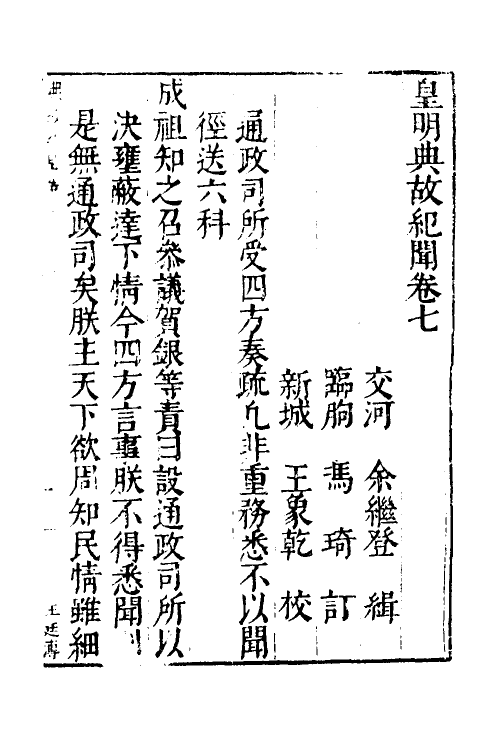 皇明典故紀聞卷七
交河　余繼登　緝
臨朐　馮　琦　訂
新城　王象乾　校
通政司所受四方奏疏凡非重務悉不以聞
徑送六科
成祖知之召參議賀銀等責曰設通政司所以
決壅蔽達下情今四方言事朕不得悉聞則
是無通政司矣朕主天下欲周知民情雖細
王廷